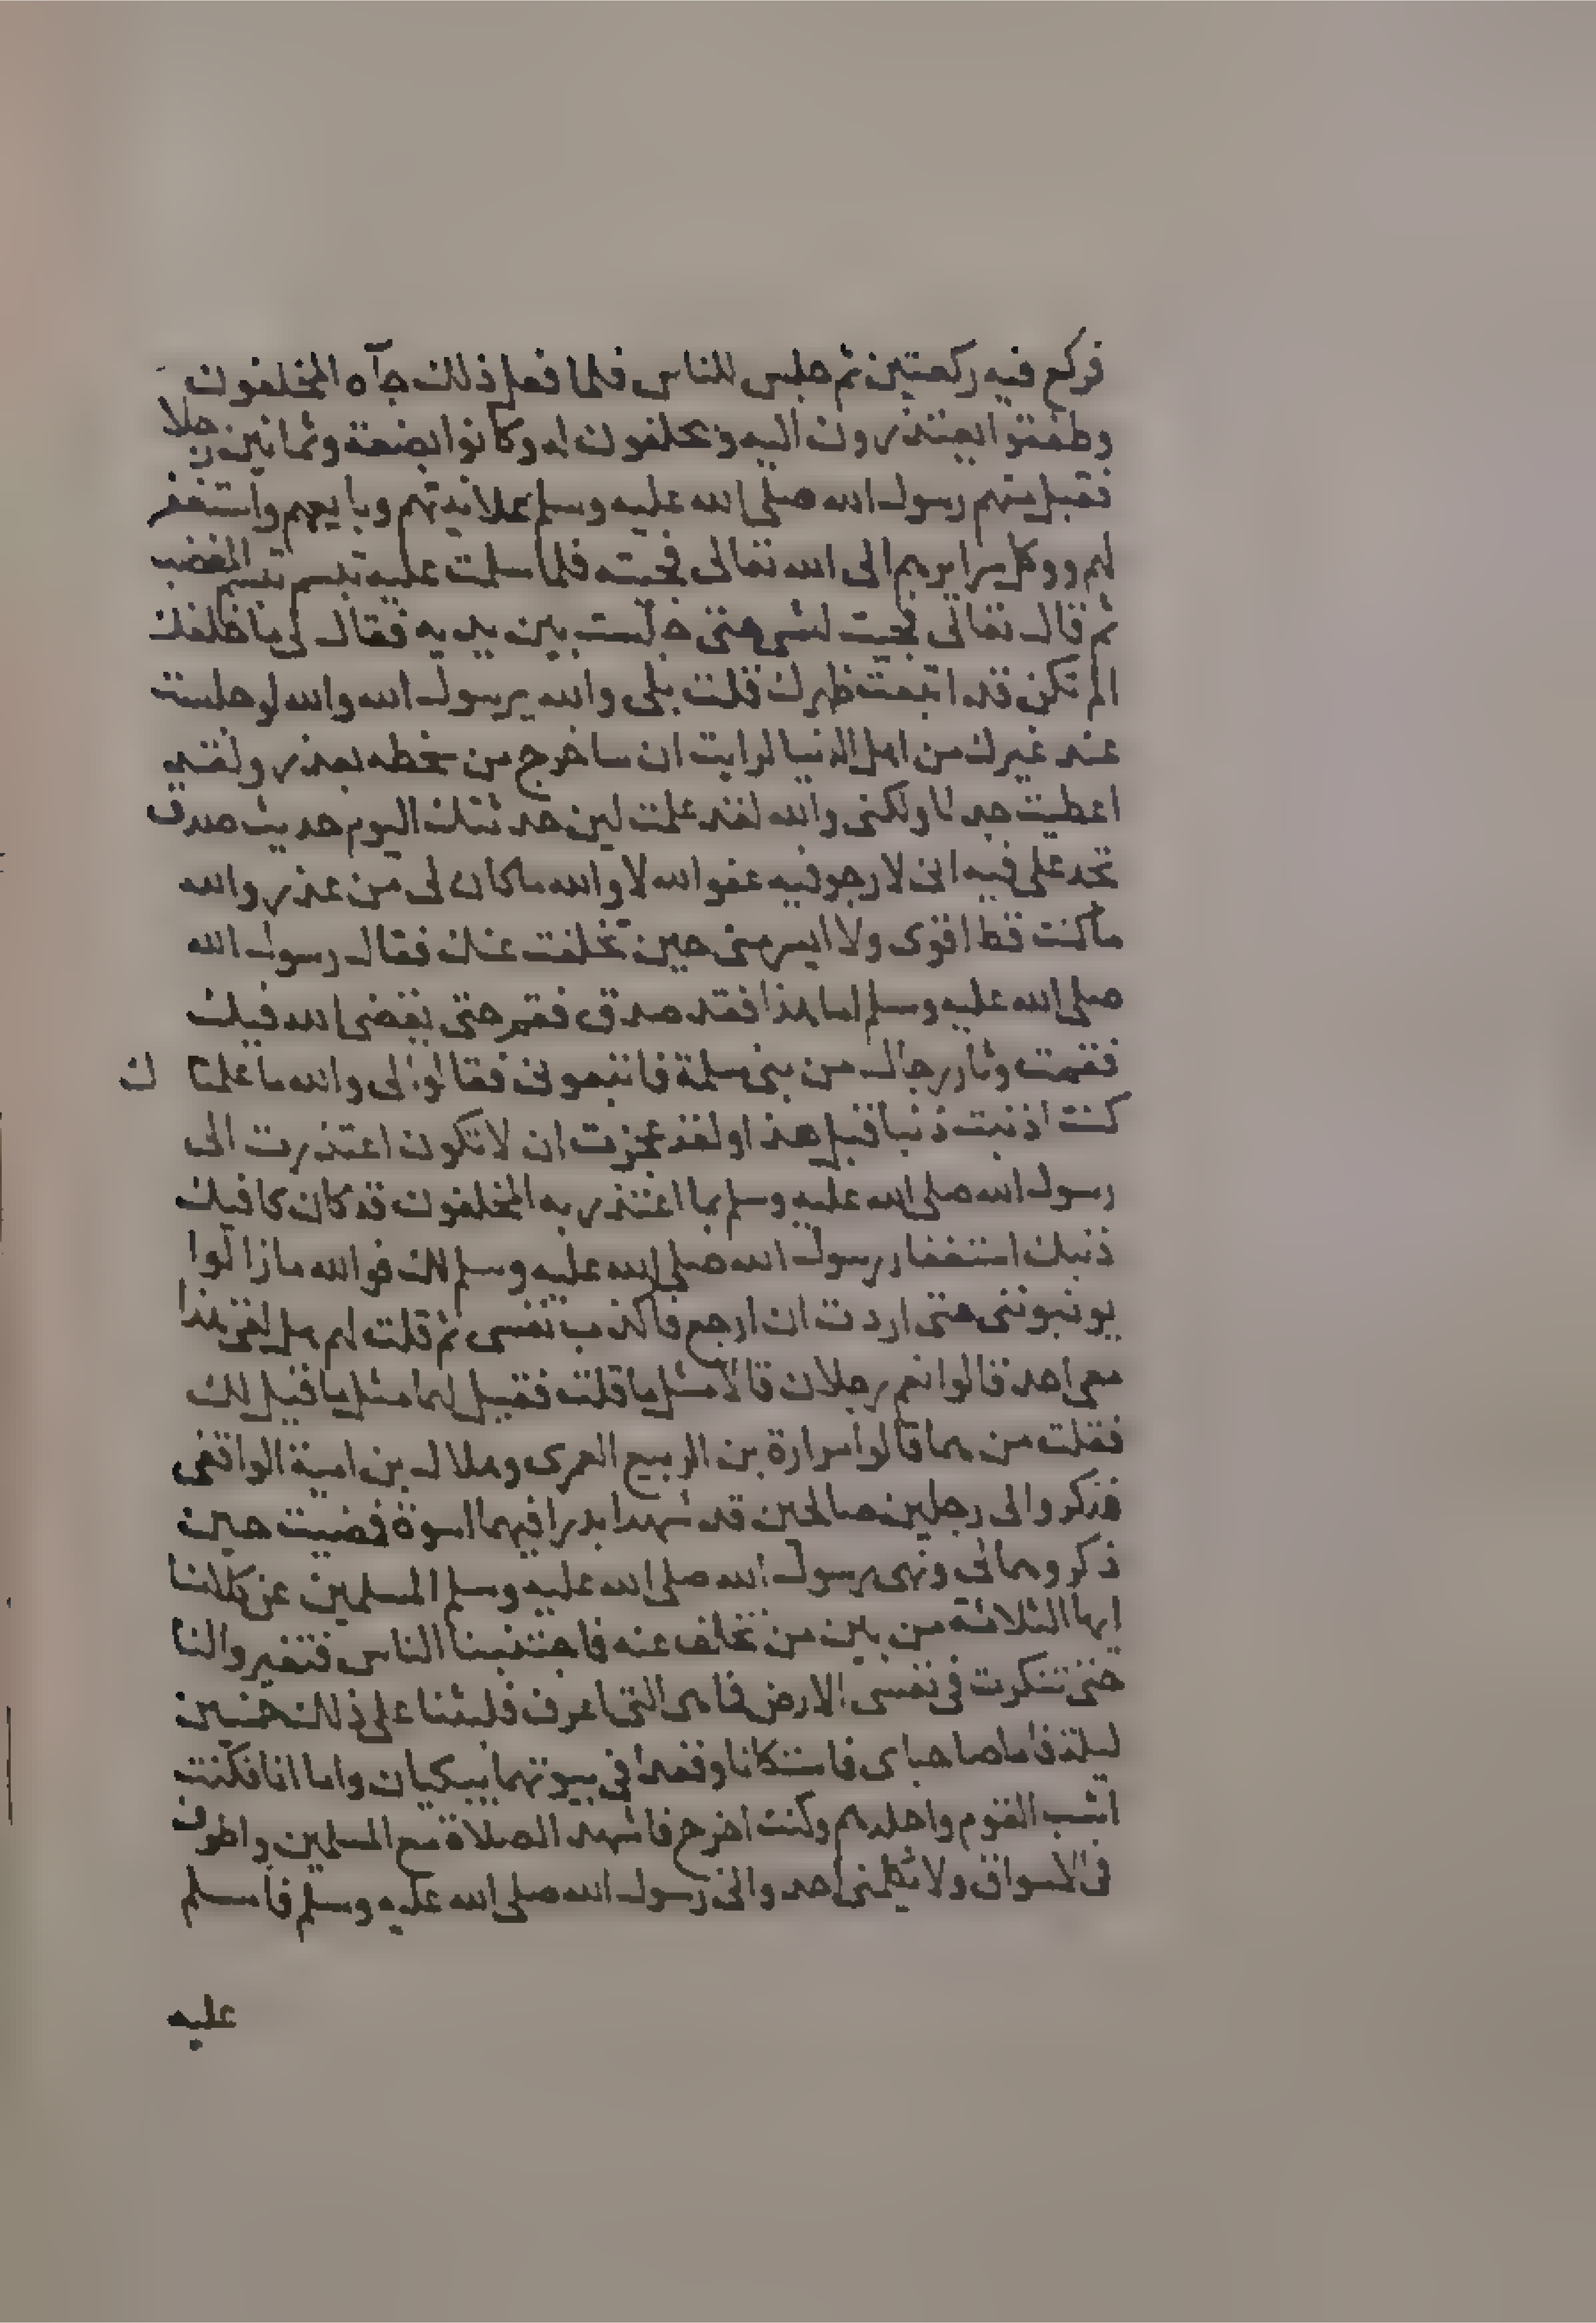 فركع فيه ركعتين ثم جلس للناس فلما فعل ذلك جآه المخلفون
وطفقوا يعتذرون اليه ويحلفون له وكانوا بضعة وثمانين رجلا
فقبل منهم رسول الله صلى الله عليه وسلم علانيتهم وبايعهم واستغفر
لهم ووكل سرايرهم الى الله تعالى فجئته فلما سلمت عليه تبسم تبسم المغضب
ثم قال تعالى فجيت امشى حتى جلست بين يديه فقال لى ما خلفك
الم تكن قد ابتعت ظهرك قلت بلى والله يرسول الله والله لو جلست
عند غيرك من اهل الدنيا لرايت ان ساخرج من سخطه بعذر ولقد
اعطيت جدلا ولكنى والله لقد علمت لين حدثتك اليوم حديث صدق
تجد على فيه انى لارجو فيه عفو الله لا والله ماكان لى من عذر والله
ماكنت قط اقوى ولا ايسر منى حين تخلفت عنك فقال رسول الله
صلى الله عليه وسلم اما هذا فقد صدق فقم حتى يقضى الله فيك
فقمت وثار رجال من بنى سلمة فاتبعونى فقالوا لى والله ما علمنا ك
كنت اذنبت ذنبا قبل هذا ولقد عجزت ان لاتكون اعتذرت الى
رسول الله صلى الله عليه وسلم بما اعتذر به المخلفون قد كان كافيك
ذنبك استغفار رسول الله صلى الله عليه وسلم لك فو الله مازالوا
يونبوننى حتى اردت ان ارجع فاكذب نفسى ثم قلت لهم هل لقى هذا
معى احد قالوا نعم رجلان قالا مثل ما قلت فقيل لهما مثل ما قيل لك
فقلت من هما قالوا مرارة بن الربيع العمرى وهلال بن امية الواقفى
فذكروا لى رجلين صالحين قد شهدا بدرا فيهما اسوة فمضيت حين
ذكروهما لى ونهى رسول الله صلى الله عليه وسلم المسلمين عن كلامنا
ايها الثلاثة من بين من تخلف عنه فاجتنبنا الناس فتغيروا لنا
حتى تنكرت فى نفسى الارض فما هى التى اعرف فلبثنا على ذلك خمسين
ليلة فاما صاحباى فاستكانا وقعدا فى بيوتهما يبكيان واما انا فكنت
اشب القوم واجلدهم وكنت اخرج فاشهد الصلاة مع المسلمين واطوف
فى الاسواق ولا يكلمنى احد واتى رسول الله صلى الله عليه وسلم فاسلم
عليه